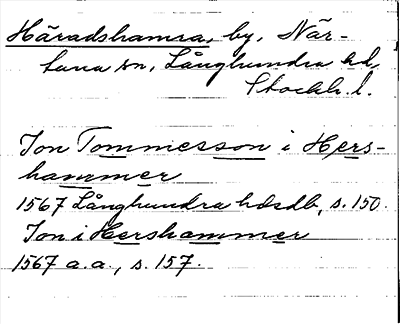 Häradshamra, by, När-
tuna sn, Långhundra hd,
Stockh. l.
Jon Tommesson i Hers-
hammer
1567 Långhundra hdsdb, s. 150.
Jon i Hershammer
1567 a.a., s. 157.